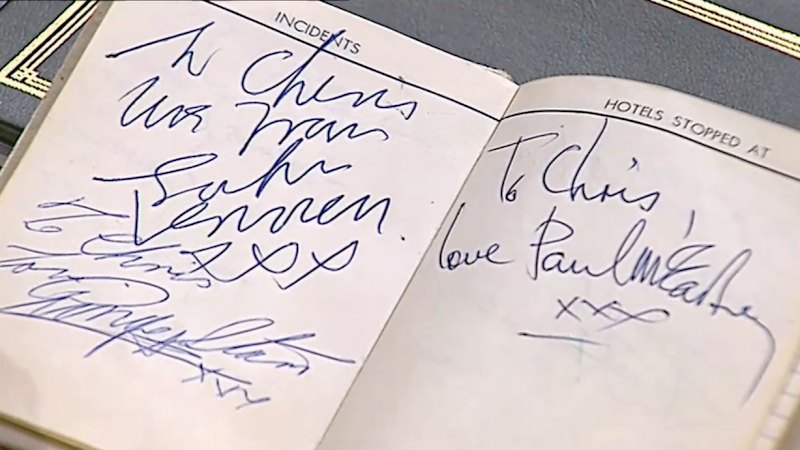 INCIDENTS
To Chris
love from
John
Lennon
XXX
To Chris
love
Ringo Starr
XXX
HOTELS STOPPED AT
To Chris,
love Paul McCartney
XXX